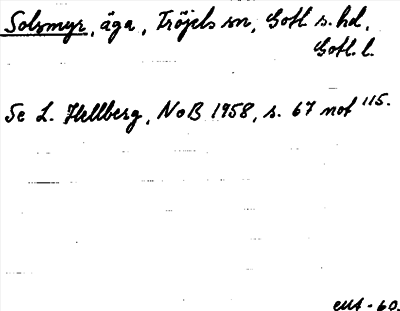 Solsmyr, äga, Fröjels sn, Gotl. s. hd,
Gotl. l.
Se L. Hellberg, NoB 1958, s. 67 not 115.
- 60.